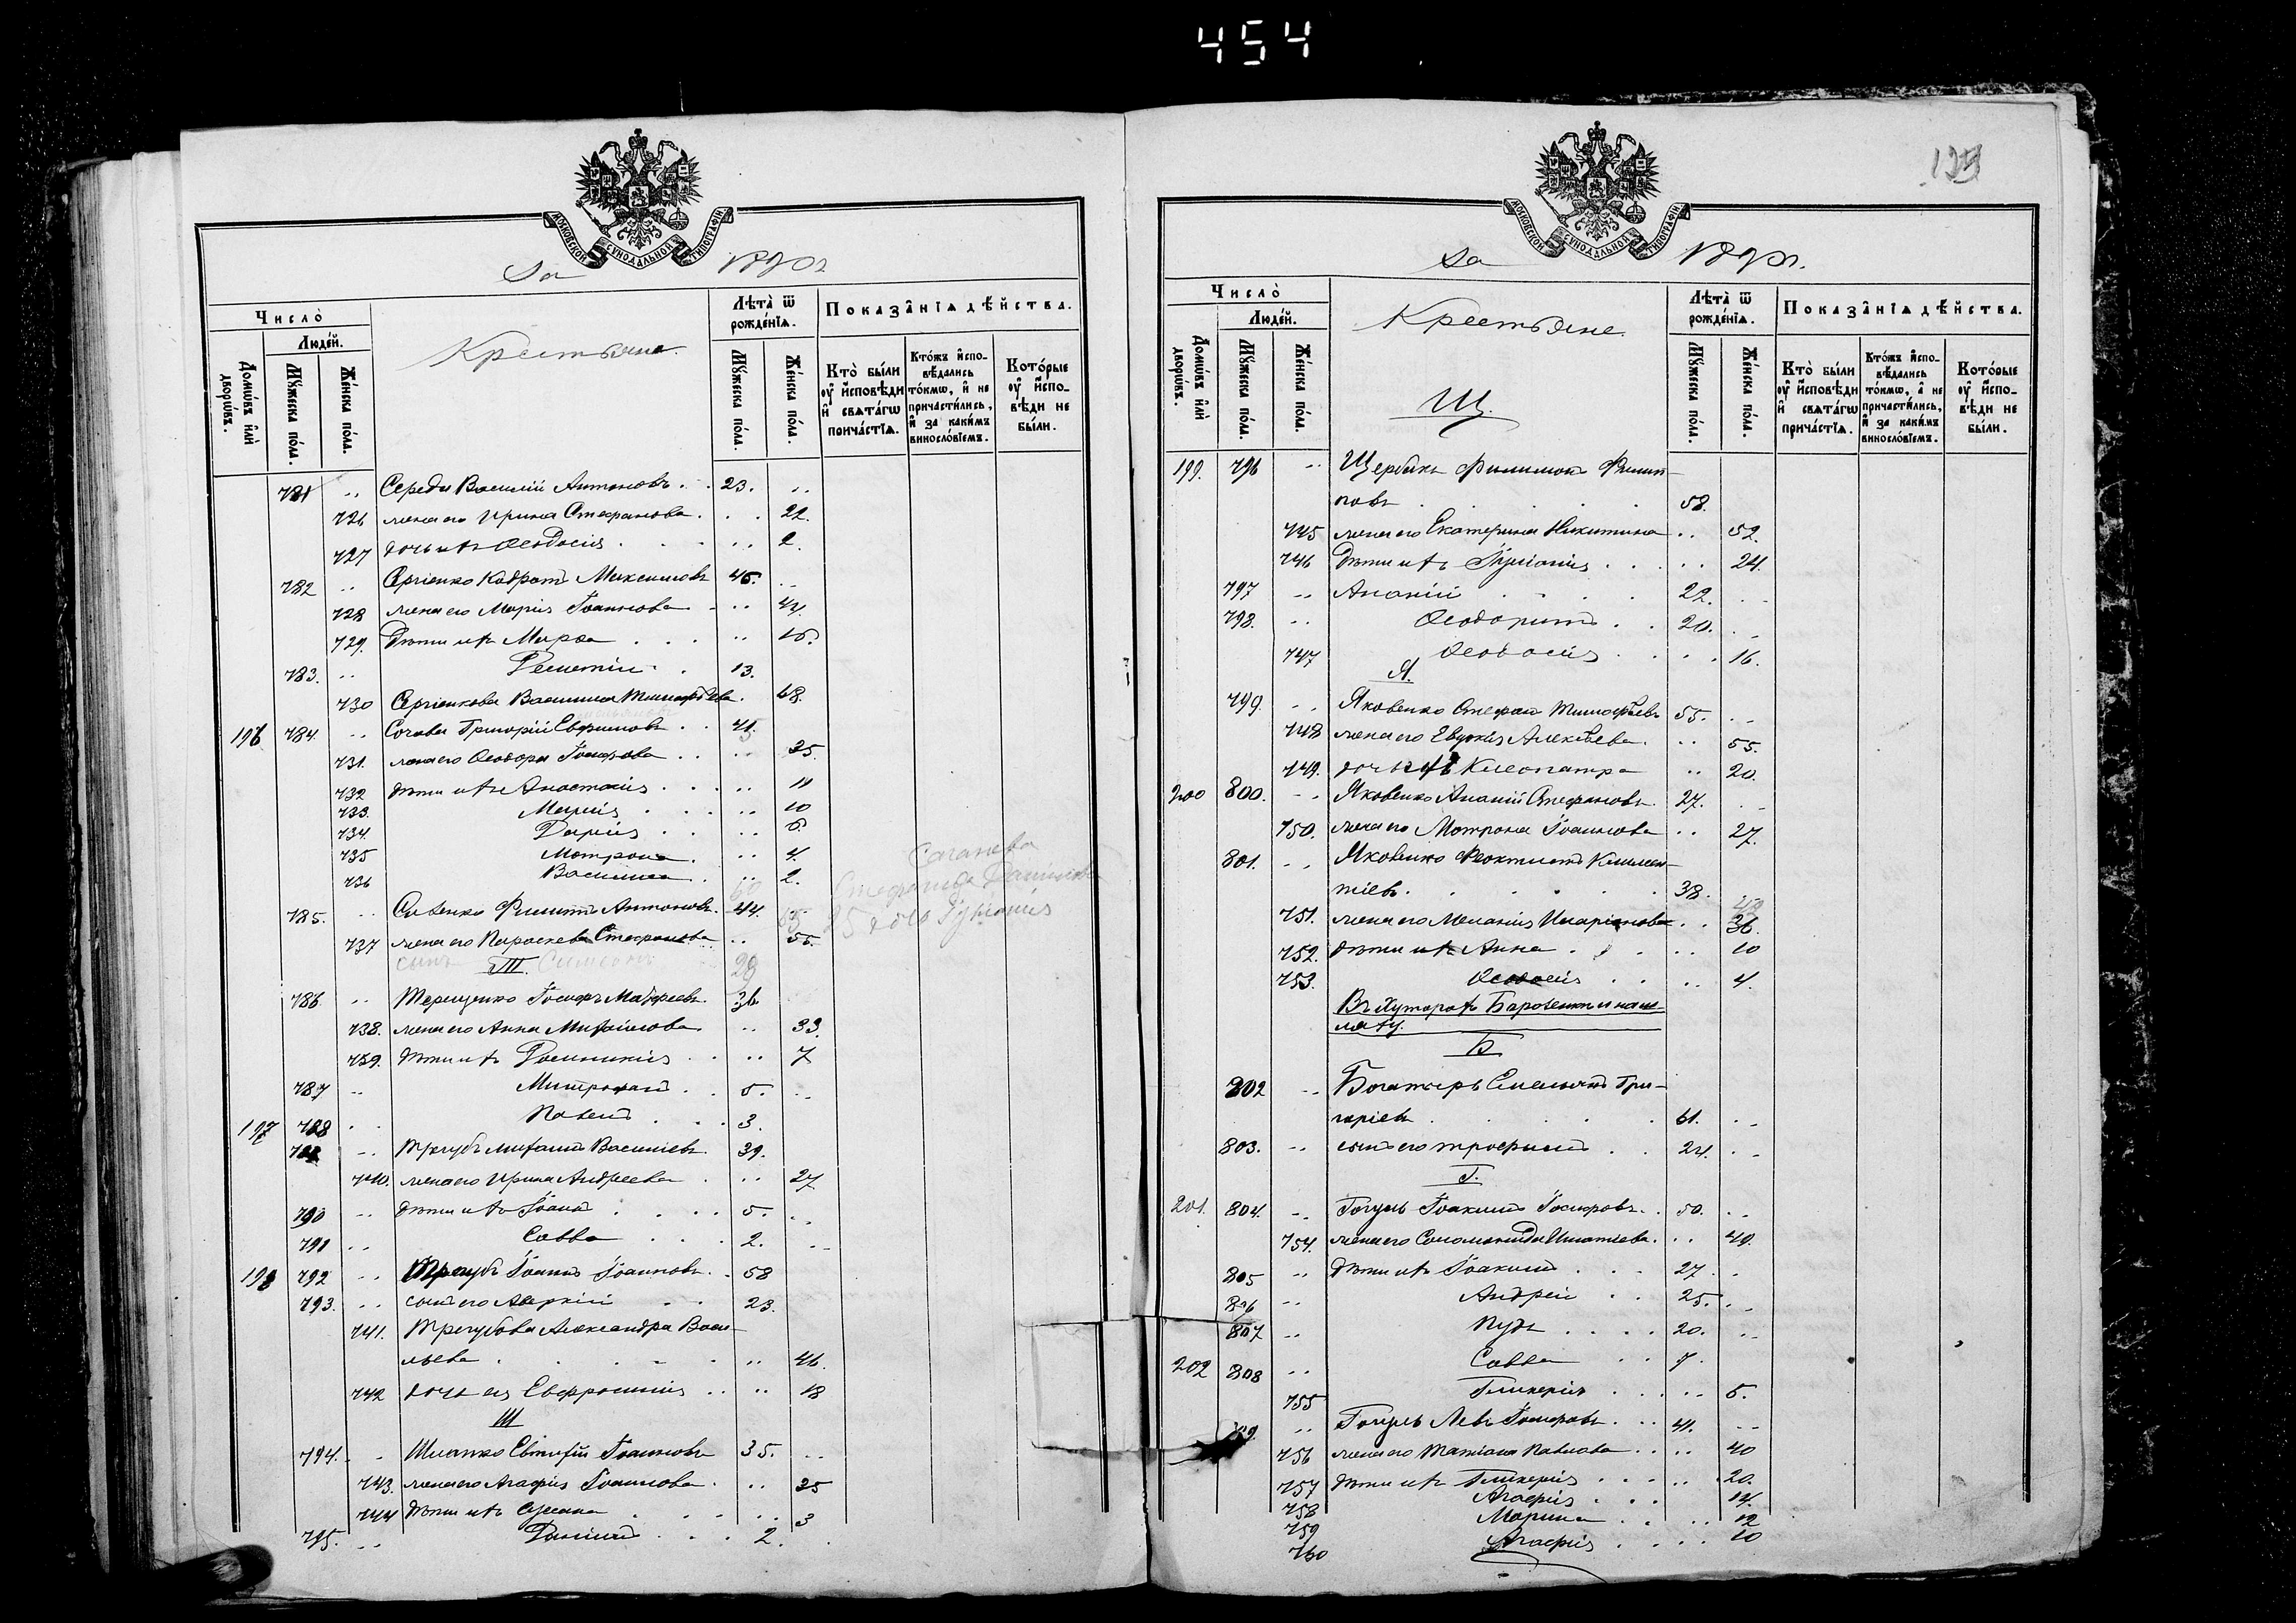 454
МОСКОВСКОЙ СѴНОДАЛЬНОЙ ТИПОГРАФІИ
За 1890 г
Число̀
Людей.
Домѡвъ или дворѡвъ.
Мꙋжеска пола.
Женска пола.
Крестьяне.
Лѣта ѿ рожденїѧ.
Мꙋжеска пола.
Женска пола.
Показанїѧ дѣйства.
Кто были оу исповѣди и свѧтагѡ причастїѧ.
Ктожъ исповѣдались токмѡ, и не причастились, и за какимъ винословїемъ.
Которые оу исповѣди не были.
781 .. Середа Василій Антоновъ . . 23. ..
726 жена его Ирина Стефанова . . . 22.
727 дочь ихъ Ѳеодосія . . . . 2.
782 .. Сергіенко Кодратъ Максимовъ 45. ..
728 жена его Марія Іоаннова ..
729. Дѣти ихъ Марѳа . . . ..
783. .. 13.
730 Сергіенкова Василиса Тимоѳѣева. 68.
196 784. .. Григорій Евфимовъ . . 41.
731. жена его Ѳеодора Іосифова . . .. 35.
732 дѣти ихъ Анастасія . . . .. 11
733. Марія . . . .. 10
734. Дарія . . . .. 6.
735 Мотрона . .. 4.
736 Василиса . .. 2.
785. .. Савенко Филиппъ Антоновъ. 44. ..
737 жена его Параскева Стефанова .. 55.
сынъ Симеонъ 29
Т.
786 .. Терещенко Іосифъ Матѳеевъ. 36
738. жена его Анна Михайлова .. 33.
739. дѣти ихъ Домникія . . .. 7
787 .. Митрофанъ . . 5. ..
197 788 . . Павелъ . . . 3.
.. Трегубъ Михаилъ Василіевъ. 39.
740. жена его Ирина Андреева . .. 27
790 .. дѣти ихъ Іоаннъ . . . . 5. ..
791 .. Савва . . . 2. ..
198 792 .. Трегубъ Іоаннъ Іоанновъ. . 58
793. .. сынъ его Аверкій . . 23.
741. Трегубова Александра Васи-
льева . . . . . . .. 46.
742 дочь ея Евфросинія . . .. 18
Ш
794. . Шлапко Евтихій Іоанновъ 35. ..
743. жена его Агафія Іоаннова . .. 25
744 Дѣти ихъ Сусана . . . .. 3
795. .. Даніилъ . . . 2. .
Стефанида
МОСКОВСКОЙ СѴНОДАЛЬНОЙ ТИПОГРАФІИ
За 1890 г.
Число̀
Людей.
Домѡвъ или дворѡвъ.
Мꙋжеска пола.
Женска пола.
Крестьяне.
Щ.
Лѣта ѿ рожденїѧ.
Мꙋжеска пола.
Женска пола.
Показанїѧ дѣйства.
Кто были оу исповѣди и свѧтагѡ причастїѧ.
Ктожъ исповѣдались токмѡ, и не причастились, и за какимъ винословїемъ.
Которые оу исповѣди не были.
199. 796 .. Щербакъ Филимонъ Филип-
повъ . . . . . 58.
745 жена его Екатерина Никитина .. 52.
746 Дѣти ихъ Іуліанія . . . .. 24.
797 .. Ананій . . . 22. . .
798. .. Ѳеодоритъ . . 20. . .
747 Ѳеодосія . . . . 16.
Я.
799. .. Яковенко Стефанъ Тимоѳѣевъ 55. . .
748 жена его Евдокія Алексѣева . .. 55.
749. дочь ихъ Клеопатра .. 20.
200 800. .. Яковенко Ананій Стефановъ. 27. . .
750. жена его Мотрона Іоаннова .. 27.
801. .. Яковенко Феоктистъ Климен-
тіевъ . . . . . . 38.
751. жена его Меланія Иларіонова . . 36.
752. дѣти ихъ Анна . . . .. 10
753. Ѳеодосія . . .. 4.
Въ Хуторахъ
Б
802 .. Богатырь Емельянъ Гри-
горіевъ . . . . . 61. ..
803. .. сынъ его Трофимъ . . 24. ..
Г.
201. 804. .. Гогуль Іоакимъ Іосифовъ . . 50. ..
754. жена его Соломонида Игнатіева. . . 49.
805 .. Дѣти ихъ Іоакимъ . . . 27. .
806 .. Андрей . . 25. ..
807 .. Пудъ . . . . 20. ..
202 808 .. Савва . . 7.
755 Гликерія . . . .. 5.
809. .. Гогуль Левъ Іосифовъ. . .. 41. ..
756 жена его Татіана Павлова . . .. 40
757 дѣти ихъ Гликерія . . . .. 20.
758 Агафія . . . 14.
759 Марина . . .. 12
760 Агафія . . . . 10